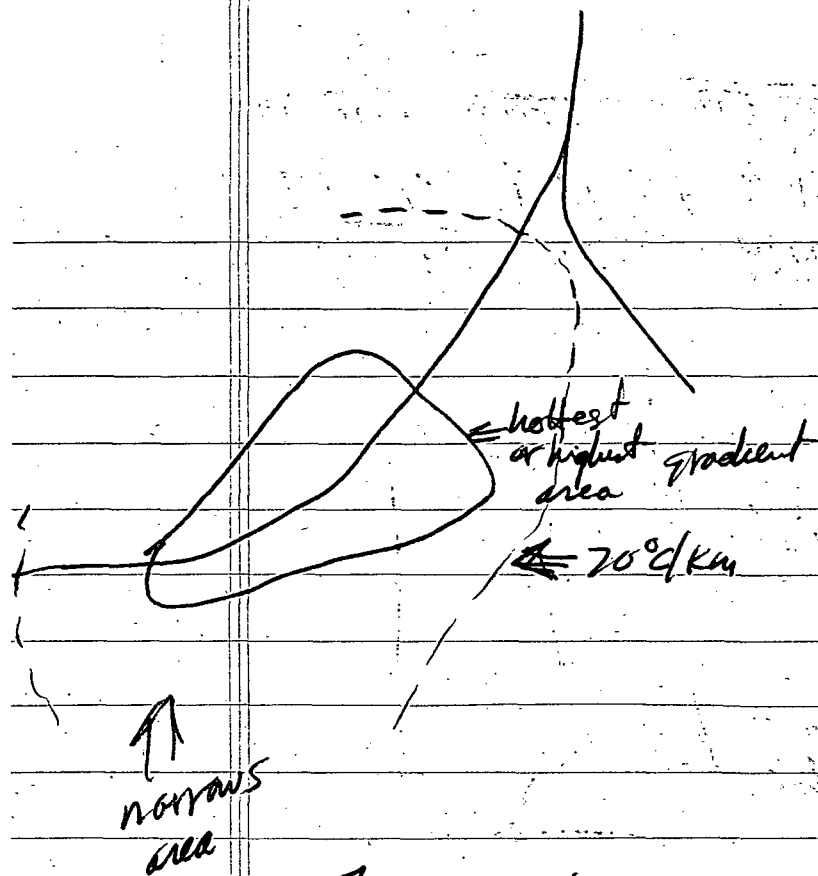 hottest
or highest gradient
area
70°C/Km
narrows
area